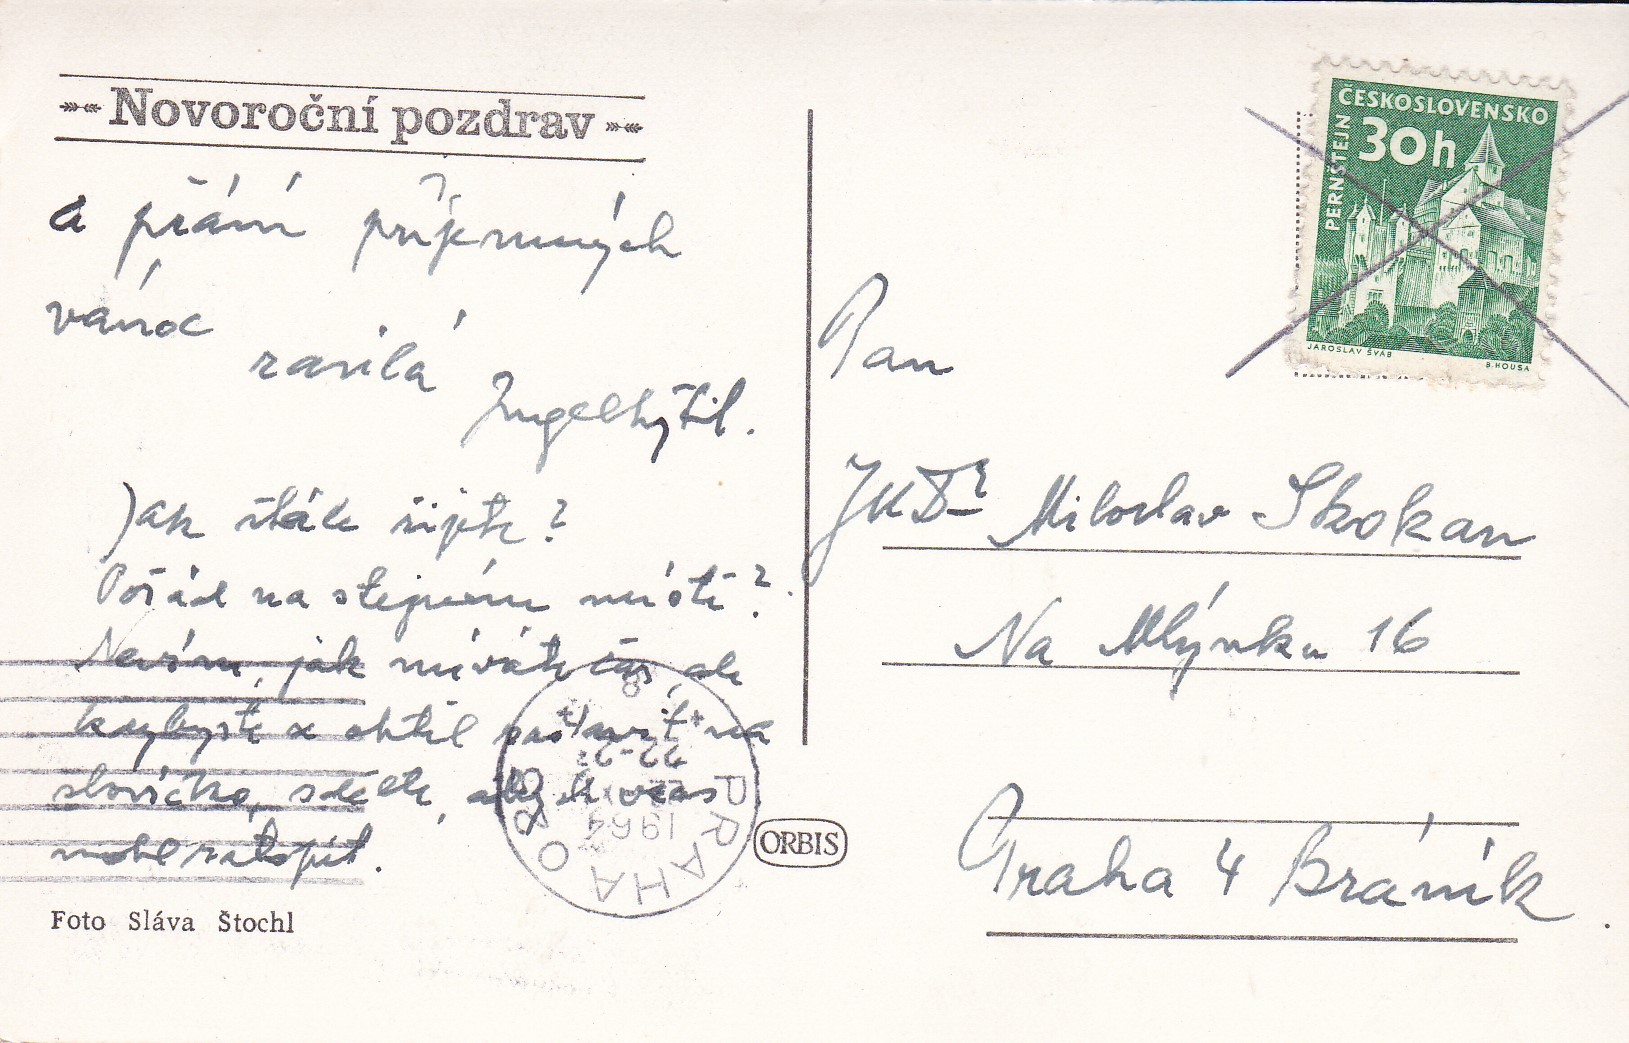 Novoroční pozdrav
a přání příjemných
vánoc
zasílá
Jak stále žijete?
Pořád na stejném místě?
Nevím, jak mívate čas, ale
kdybyste chtěl na
slovíčko, sdělte, abych včas
mohl zatopit.
Foto Sláva Štochl
ORBIS
PRAHA
1964
ČESKOSLOVENSKO
30h
PERNŠTEJN
JAROSLAV ŠVÁB
B. HOUSA
Pan
JUDr Miloslav Skokan
Na Mlýnku 16
Praha 4 Bráník